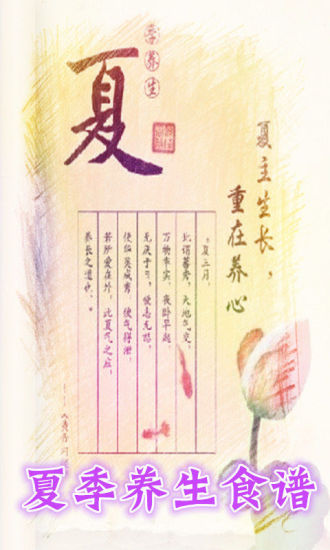 夏
季养生
夏主生长，
重在养心
“夏三月，
此谓蕃秀，天地气交，
万物华实，夜卧早起，
无厌于日，使志无怒，
使华英成秀，使气得泄，
若所爱在外，此夏气之应，
养长之道也。”
夏季养生食谱